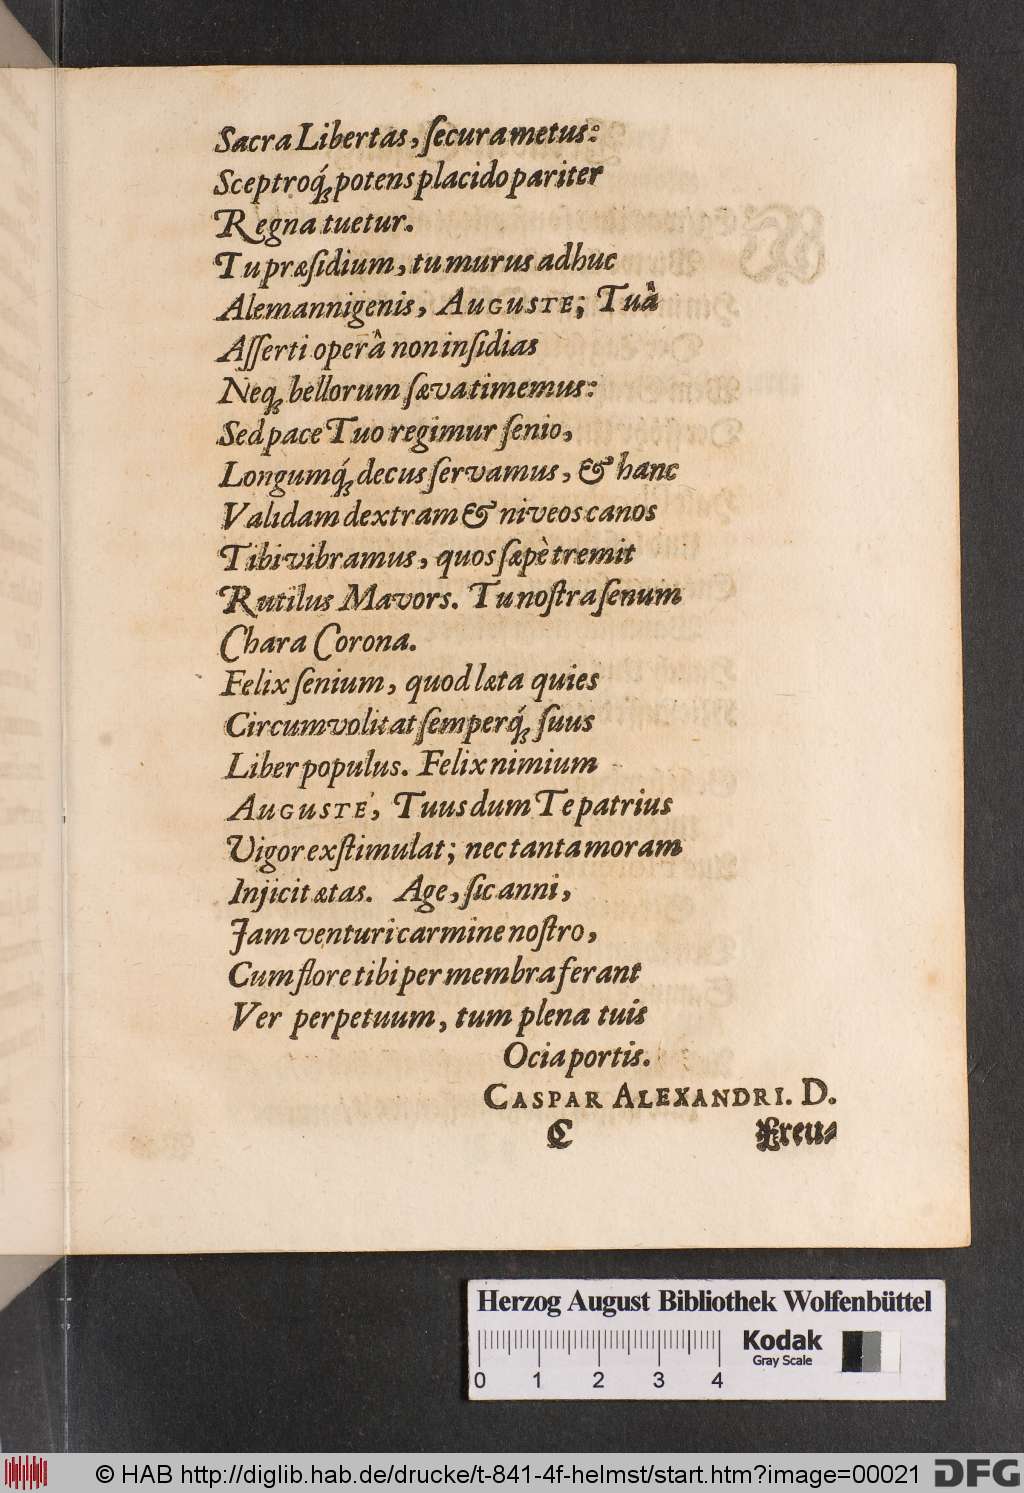 Sacra Libertas, ſecura metus:
Sceptroq́; potens placido pariter
Regna tuetur.
Tu præſidium, tu murus adhuc
Alemannigenis, AUGUSTE; Tuâ
Aſſerti operâ non inſidias
Neq; bellorum ſæva timemus:
Sed pace Tuo regimur ſenio,
Longumq́; decus ſervamus, & hanc
Validam dextram & niveos canos
Tibi vibramus, quos ſæpè tremit
Rutilus Mavors. Tu noſtra ſenum
Chara Corona.
Felix ſenium, quod læta quies
Circumvolitat ſemperq́; ſuus
Liber populus. Felix nimium
AUGUSTE, Tuus dum Te patrius
Vigor exſtimulat; nec tanta moram
Injicit ætas. Age, ſic anni,
Jam venturi carmine noſtro,
Cum flore tibi per membra ferant
Ver perpetuum, tum plena tuis
Ocia portis.
CASPAR ALEXANDRI. D.
C Freu⸗
Herzog August Bibliothek Wolfenbüttel
Kodak
Gray Scale
0 1 2 3 4
© HAB http://diglib.hab.de/drucke/t-841-4f-helmst/start.htm?image=00021 DFG